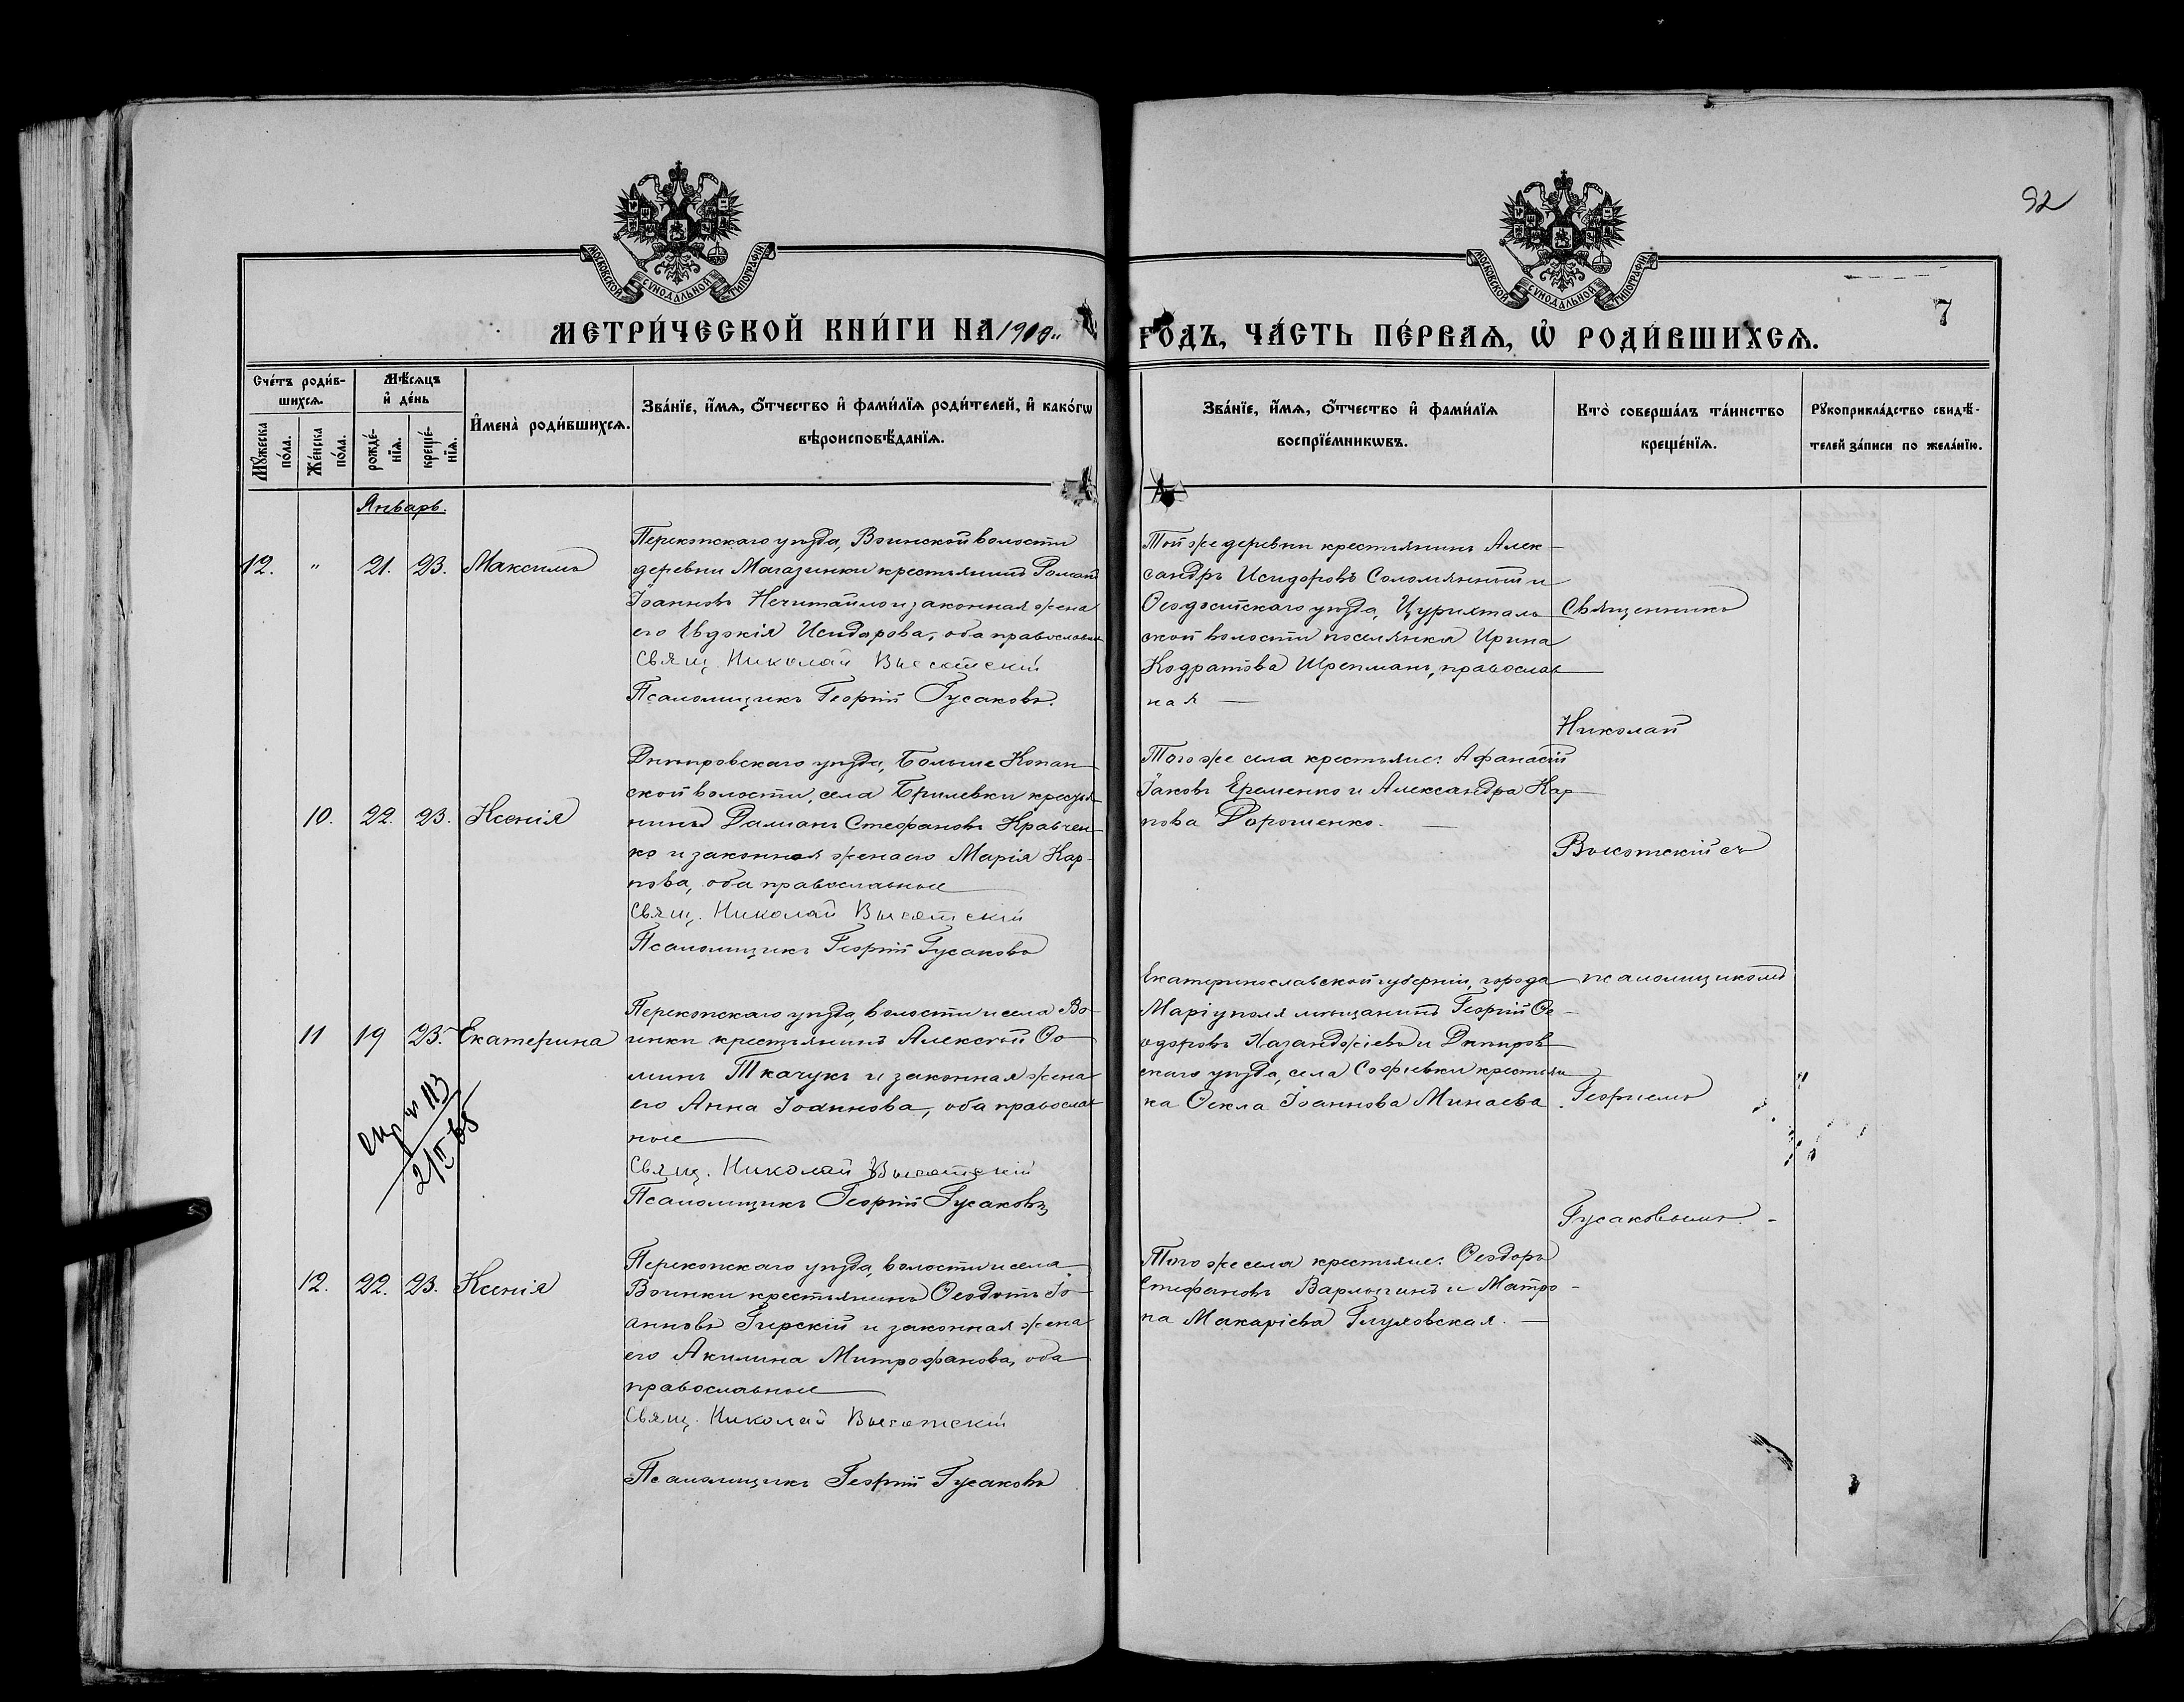 92
МОСКОВСКОЙ СѴНОДАЛЬНОЙ ТИПОГРАФІИ
МОСКОВСКОЙ СѴНОДАЛЬНОЙ ТИПОГРАФІИ
7
МЕТРИ́ЧЕСКОЙ КНИ́ГИ НА 190
ГО́ДЪ, ЧА́СТЬ ПЕ́РВАѦ, Ѡ҆ РОДИ́ВШИХСѦ.
Сче́тъ роди́в-
шихсѧ.
Мѹ́жеска по́ла.
Же́нска по́ла.
Мѣ́сѧцъ
и҆ де́нь
рожде́-нїѧ.
креще́-нїѧ.
И҆мена̀ роди́вшихсѧ.
Зва́нїе, и҆́мѧ, ѻ҆́тчество и҆ фами́лїѧ роди́телей, и҆ како́гѡ
вѣроисповѣ́данїѧ.
Зва́нїе, и҆́мѧ, ѻ҆́тчество и҆ фами́лїѧ
воспрїе́мникѡвъ.
Кто̀ соверша́лъ та́инство
креще́нїѧ.
Рѹкоприкла́дство свидѣ́-
телей за́писи по жела́нїю.
Январь.
12. " 21. 23. Максимъ
Перекопскаго уѣзда, Воинской волости
деревни Магазинки крестьянинъ Романъ
Іоанновъ Нечитайло и законная жена
его Евдокія Исидорова, оба православные
Свящ. Николай Высотскій
Псаломщикъ Георгій Гусаковъ.
Той же деревни крестьянинъ Алек-
сандръ Исидоровъ Соломянный и
Ѳеодосійскаго уѣзда, Цурихталь
ской волости поселянка Ирина
Кодратова православ
ная
10. 22. 23. Ксенія
Днѣпровскаго уѣзда, Больше Копан-
ской волости, села Брилевки крестья-
нинъ Даміанъ Стефановъ Кравчен-
ко и законная жена его Марія Кар-
пова, оба православные
Свящ. Николай Высотскій
Псаломщикъ Георгій Гусаковъ
Того же села крестьяне: Афанасій
Іаковъ Еременко и Александра Кар-
пова Дорошенко.
11 19 23. Екатерина
№ 113
2/II 65
Перекопскаго уѣзда, волости и села Во-
инки крестьянинъ Алексѣй Ѳо-
минъ Ткачукъ и законная жена
его Анна Іоаннова, оба православ
ные
Свящ. Николай Высотскій
Псаломщикъ Георгій Гусаковъ
Екатеринославской губерніи, города
Маріуполя мѣщанинъ Георгій Ѳе-
одоровъ Хазанджіевъ и Днѣпров
скаго уѣзда, села Софіевки крестьян
ка Ѳекла Іоаннова Минаева.
12. 22. 23. Ксенія
Перекопскаго уѣзда, волости и села
Воинки крестьянинъ Ѳеодотъ Іо-
анновъ Гирскій и законная жена
его Акилина Митрофанова, оба
православные
Свящ. Николай Высотскій
Псаломщикъ Георгій Гусаковъ
Того же села крестьяне: Ѳеодоръ
Стефановъ Варлыгинъ и Матро-
на Макаріева Глуховская.
Священникъ
Николай
Высотскій съ
псаломщикомъ
Георгіемъ
Гусаковымъ.